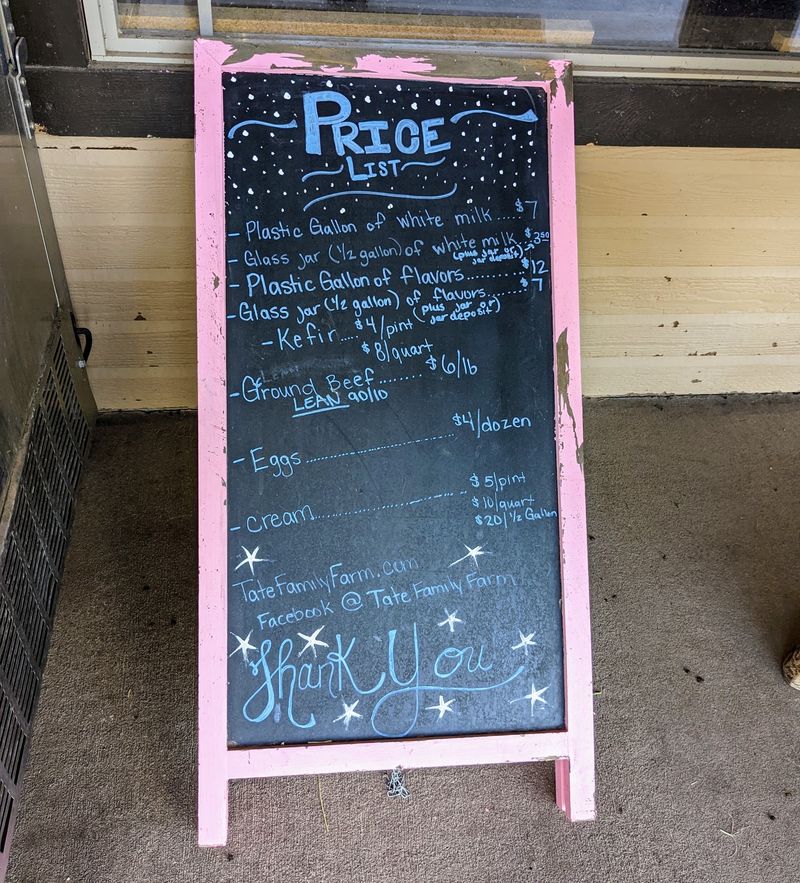 PRICE
LIST
- Plastic Gallon of white milk.....$7
- Glass jar (1/2 gallon) of white milk..$3.50
(plus jar or
jar deposit)
- Plastic Gallon of flavors..........$12
- Glass jar (1/2 gallon) of flavors.......$7
(plus jar or
jar deposit)
- Kefir....$4/pint
$8/quart
- Ground Beef........$6/lb
LEAN 90/10
- Eggs..............................$4/dozen
- cream..............................$5/pint
$10/quart
$20/1/2 Gallon
TateFamilyFarm.com
Facebook @ Tate Family Farm
Thank You